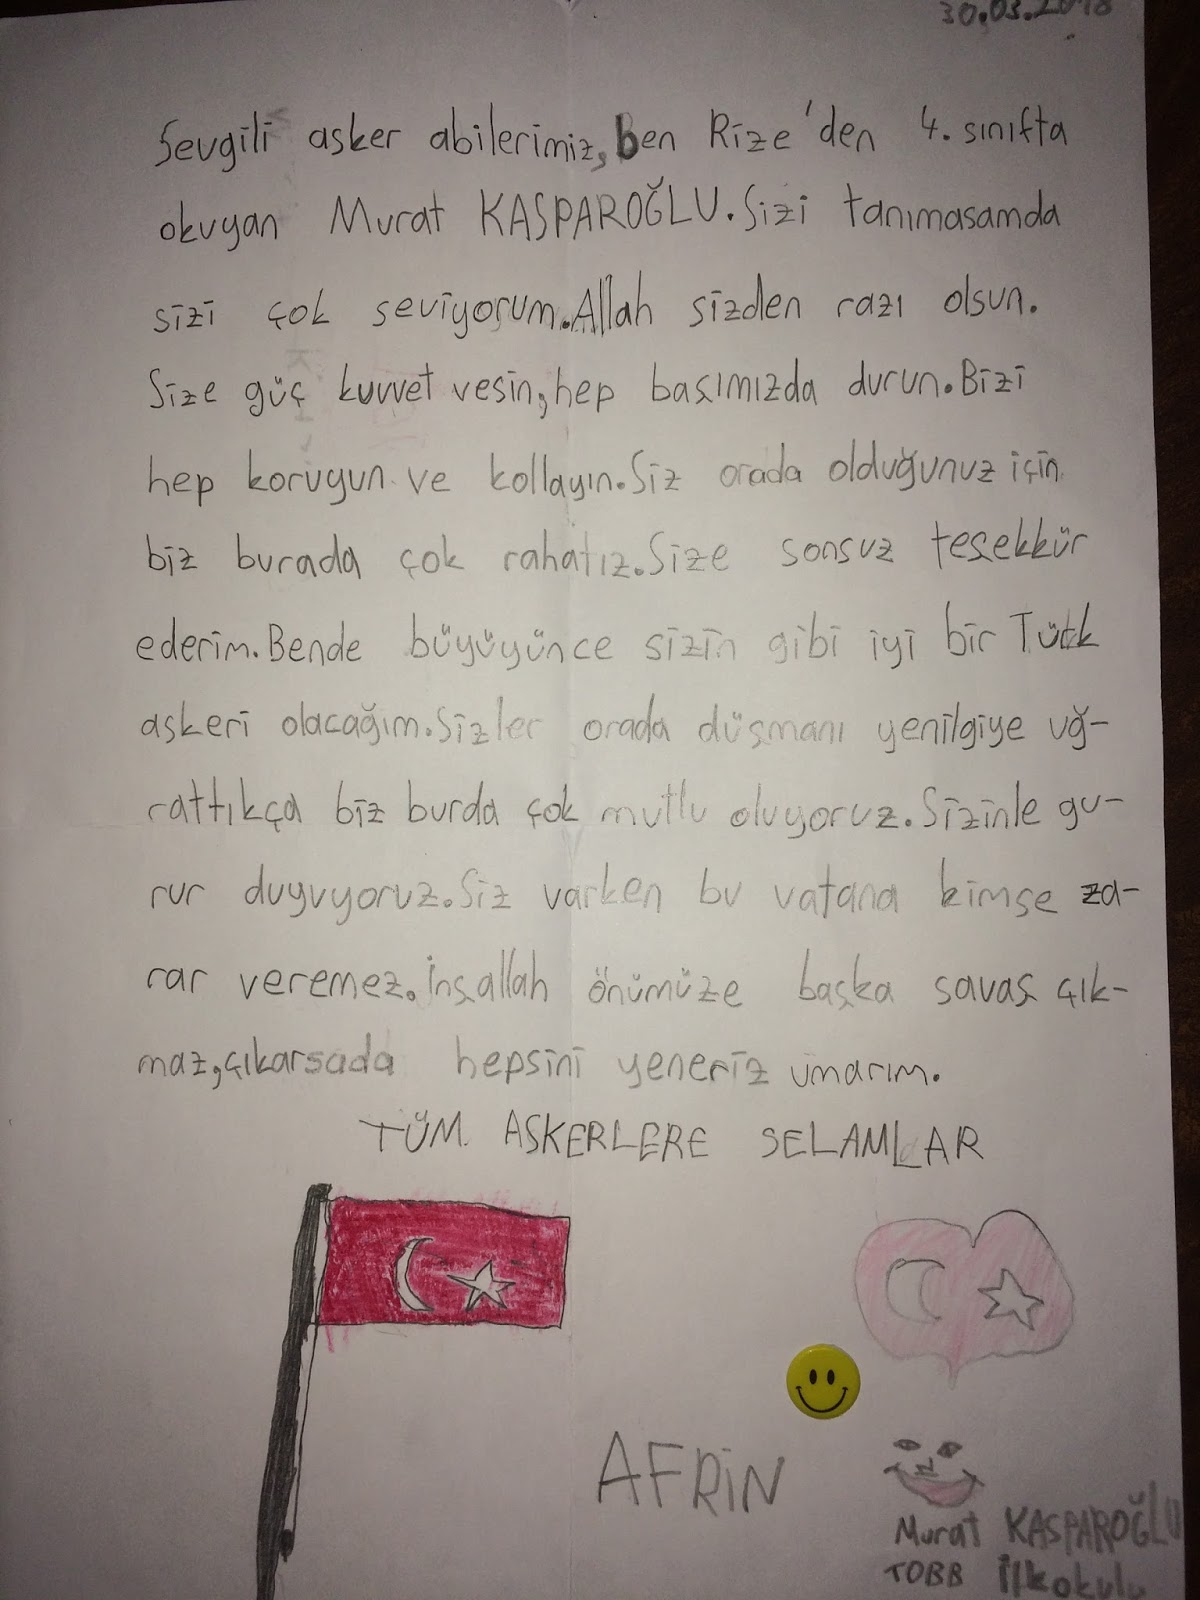 30.03.2018
Sevgili asker abilerimiz, ben Rize'den 4. sınıfta
okuyan Murat KASPAROĞLU. Sizi tanımasamda
sizi çok seviyorum. Allah sizden razı olsun.
Size güç kuvvet vesin, hep başımızda durun. Bizi
hep koruyun ve kollayın. Siz orada olduğunuz için
biz burada çok rahatız. Size sonsuz teşekkür
ederim. Bende büyüyünce sizin gibi iyi bir Türk
askeri olacağım. Sizler orada düşmanı yenilgiye uğ-
rattıkça biz burda çok mutlu oluyoruz. Sizinle gu-
rur duyuyoruz. Siz varken bu vatana kimse za-
rar veremez. İnşallah önümüze başka savaş çık-
maz, çıkarsada hepsini yeneriz umarım.
TÜM ASKERLERE SELAMLAR
AFRİN
Murat KASPAROĞLU
TOBB İlkokulu